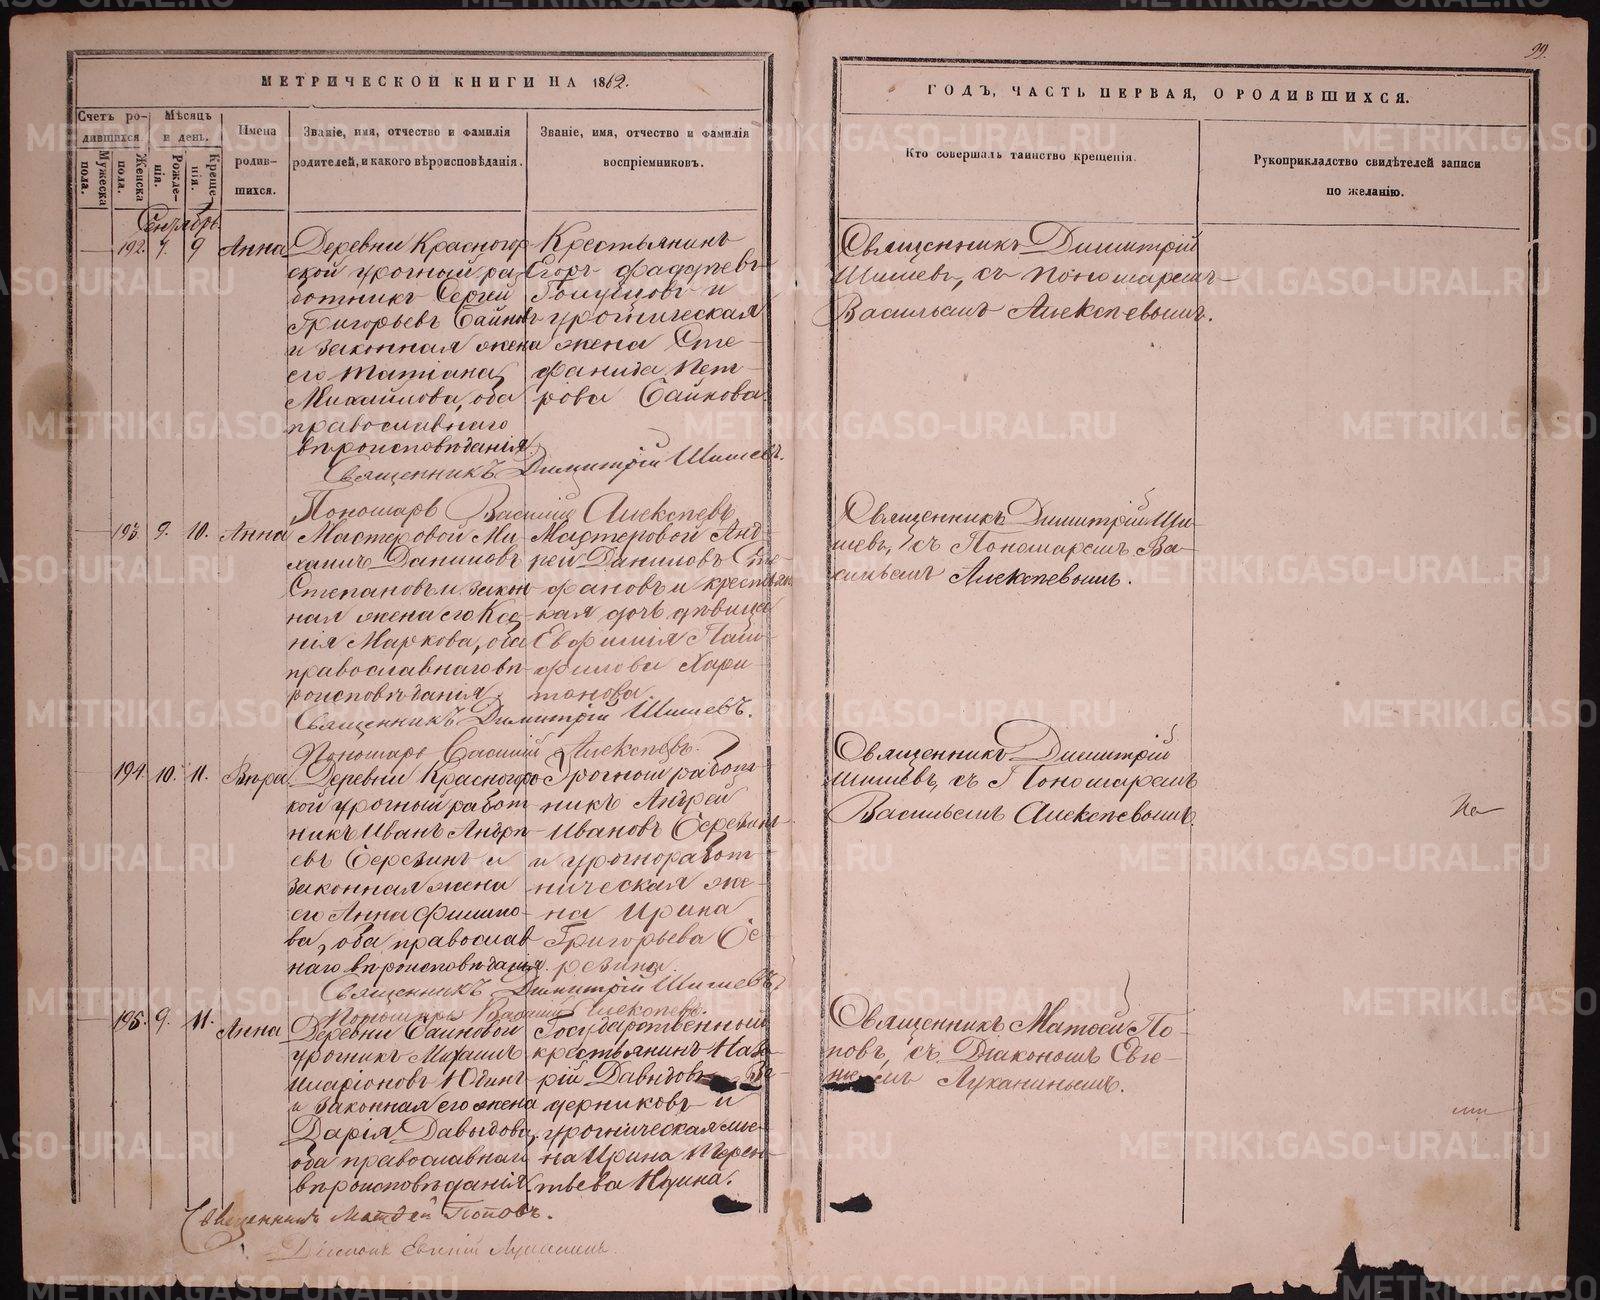 99.
МЕТРИЧЕСКОЙ КНИГИ НА 1862.
ГОДЪ, ЧАСТЬ ПЕРВАЯ, О РОДИВШИХСЯ.
Счетъ ро-
дившихся.
Мужеска
пола.
Женска
пола.
Мѣсяцъ
и день.
Рожде-
нія.
Креще-
нія.
Имена
родив-
шихся.
Званіе, имя, отчество и фамилія
родителей, и какого вѣроисповѣданія.
Званіе, имя, отчество и фамилія
воспріемниковъ.
Кто совершалъ таинство крещенія.
Рукоприкладство свидѣтелей записи
по желанію.
Сентябрь
192. 7. 9 Анна
Деревни Красногор
ской урочный ра-
ботникъ Сергей
Григорьевъ Байновъ
и законная жена
его Татіана
Михайлова, оба
православнаго
вѣроисповѣданія.
Крестьянинъ
Егоръ Фаддѣевъ
и
урочническая
жена Сте-
фанида Пет-
рова Байнова
Священникъ Димитрій
Шишевъ, съ Пономаремъ
Васильемъ Алексѣевымъ.
Священникъ Димитрій Шишевъ.
Пономарь Василій Алексѣевъ
193. 9. 10. Анна
Мастеровой Ми-
хаилъ Даниловъ
Степановъ и закон-
ная жена его Ксе-
нія Маркова, оба
православнаго вѣ-
роисповѣданія.
Мастеровой Анд-
рей Даниловъ Сте-
фановъ и крестьян
ская дочь дѣвица
Евфимія Пам-
филова Хари-
тонова.
Священникъ Димитрій Ши-
шевъ, съ Пономаремъ Ва-
сильемъ Алексѣевымъ.
Священникъ Димитрій Шишевъ.
Пономарь Василій Алексѣевъ.
194. 10. 11. Вѣра
Деревни Красногорс
кой урочный работ
никъ Иванъ Андрѣ-
евъ Березинъ и
законная жена
его Анна Филипо-
ва, оба православ
наго вѣроисповѣданія.
Урочный работ-
никъ Андрей
Ивановъ Березинъ
и урочноработ-
ническая же-
на Ирина
Григорьева Бе-
резина.
Священникъ Димитрій
Шишевъ, съ Пономаремъ
Васильемъ Алексѣевымъ.
Священникъ Димитрій Шишевъ
Пономарь Василій Алексѣевъ.
195. 9. 11. Анна
Деревни Байновой
урочникъ Михаилъ
Иларіоновъ Юдинъ
и законная его жена
Дарія Давыдова,
оба православнаго
вѣроисповѣданія.
Государственный
крестьянинъ
Давыдовъ
и
урочническая же-
на Ирина Терен-
тьева Юдина.
Священникъ Матвей По-
повъ, съ Діакономъ Евге-
ніемъ Луканинымъ.
Священникъ Матвей Поповъ.
Діаконъ Евгеній Луканинъ.
METRIKI.GASO-URAL.RU